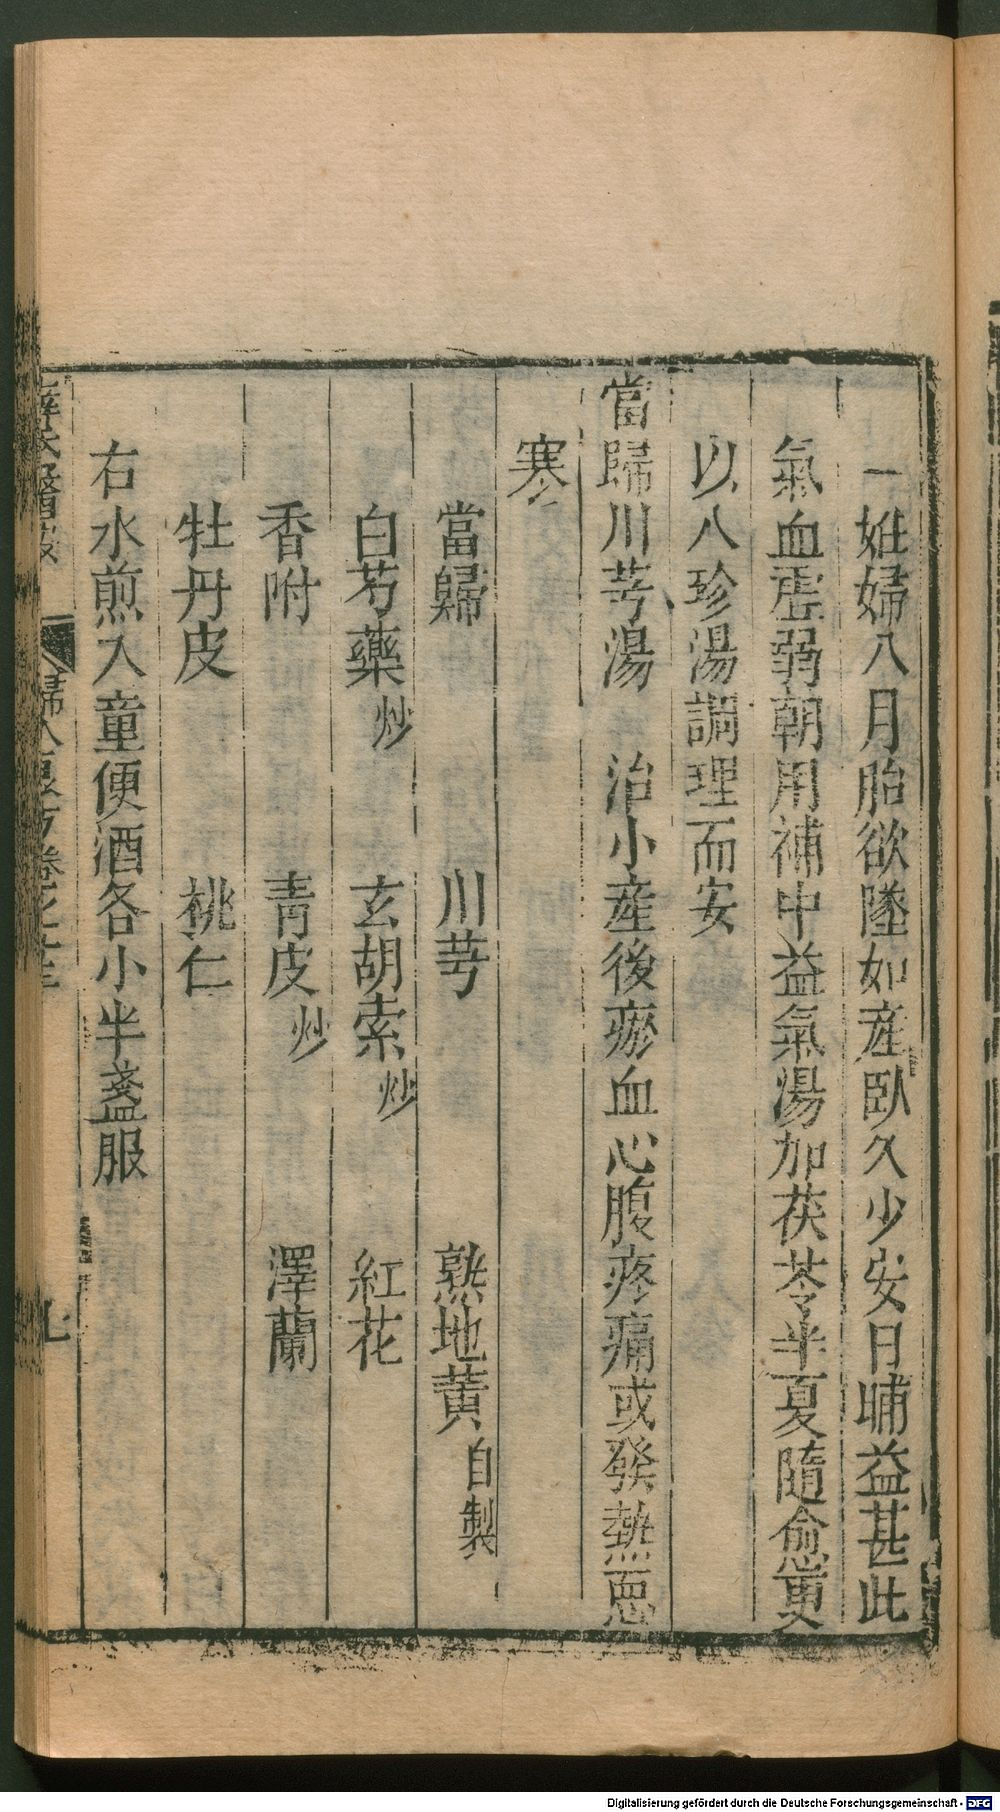 一姙婦八月胎欲墜如産臥久少安日晡益甚此
氣血虛弱朝用補中益氣湯加茯苓半夏隨愈更
以八珍湯調理而安
當歸川芎湯 治小産後瘀血心腹疼痛或發熱惡
寒
當歸 川芎 熟地黃自製
白芍藥炒 玄胡索炒 紅花
香附 青皮炒 澤蘭
牡丹皮 桃仁
右水煎入童便酒各小半盞服
婦人良方卷之 七
Digitalisierung gefördert durch die Deutsche Forschungsgemeinschaft - DFG